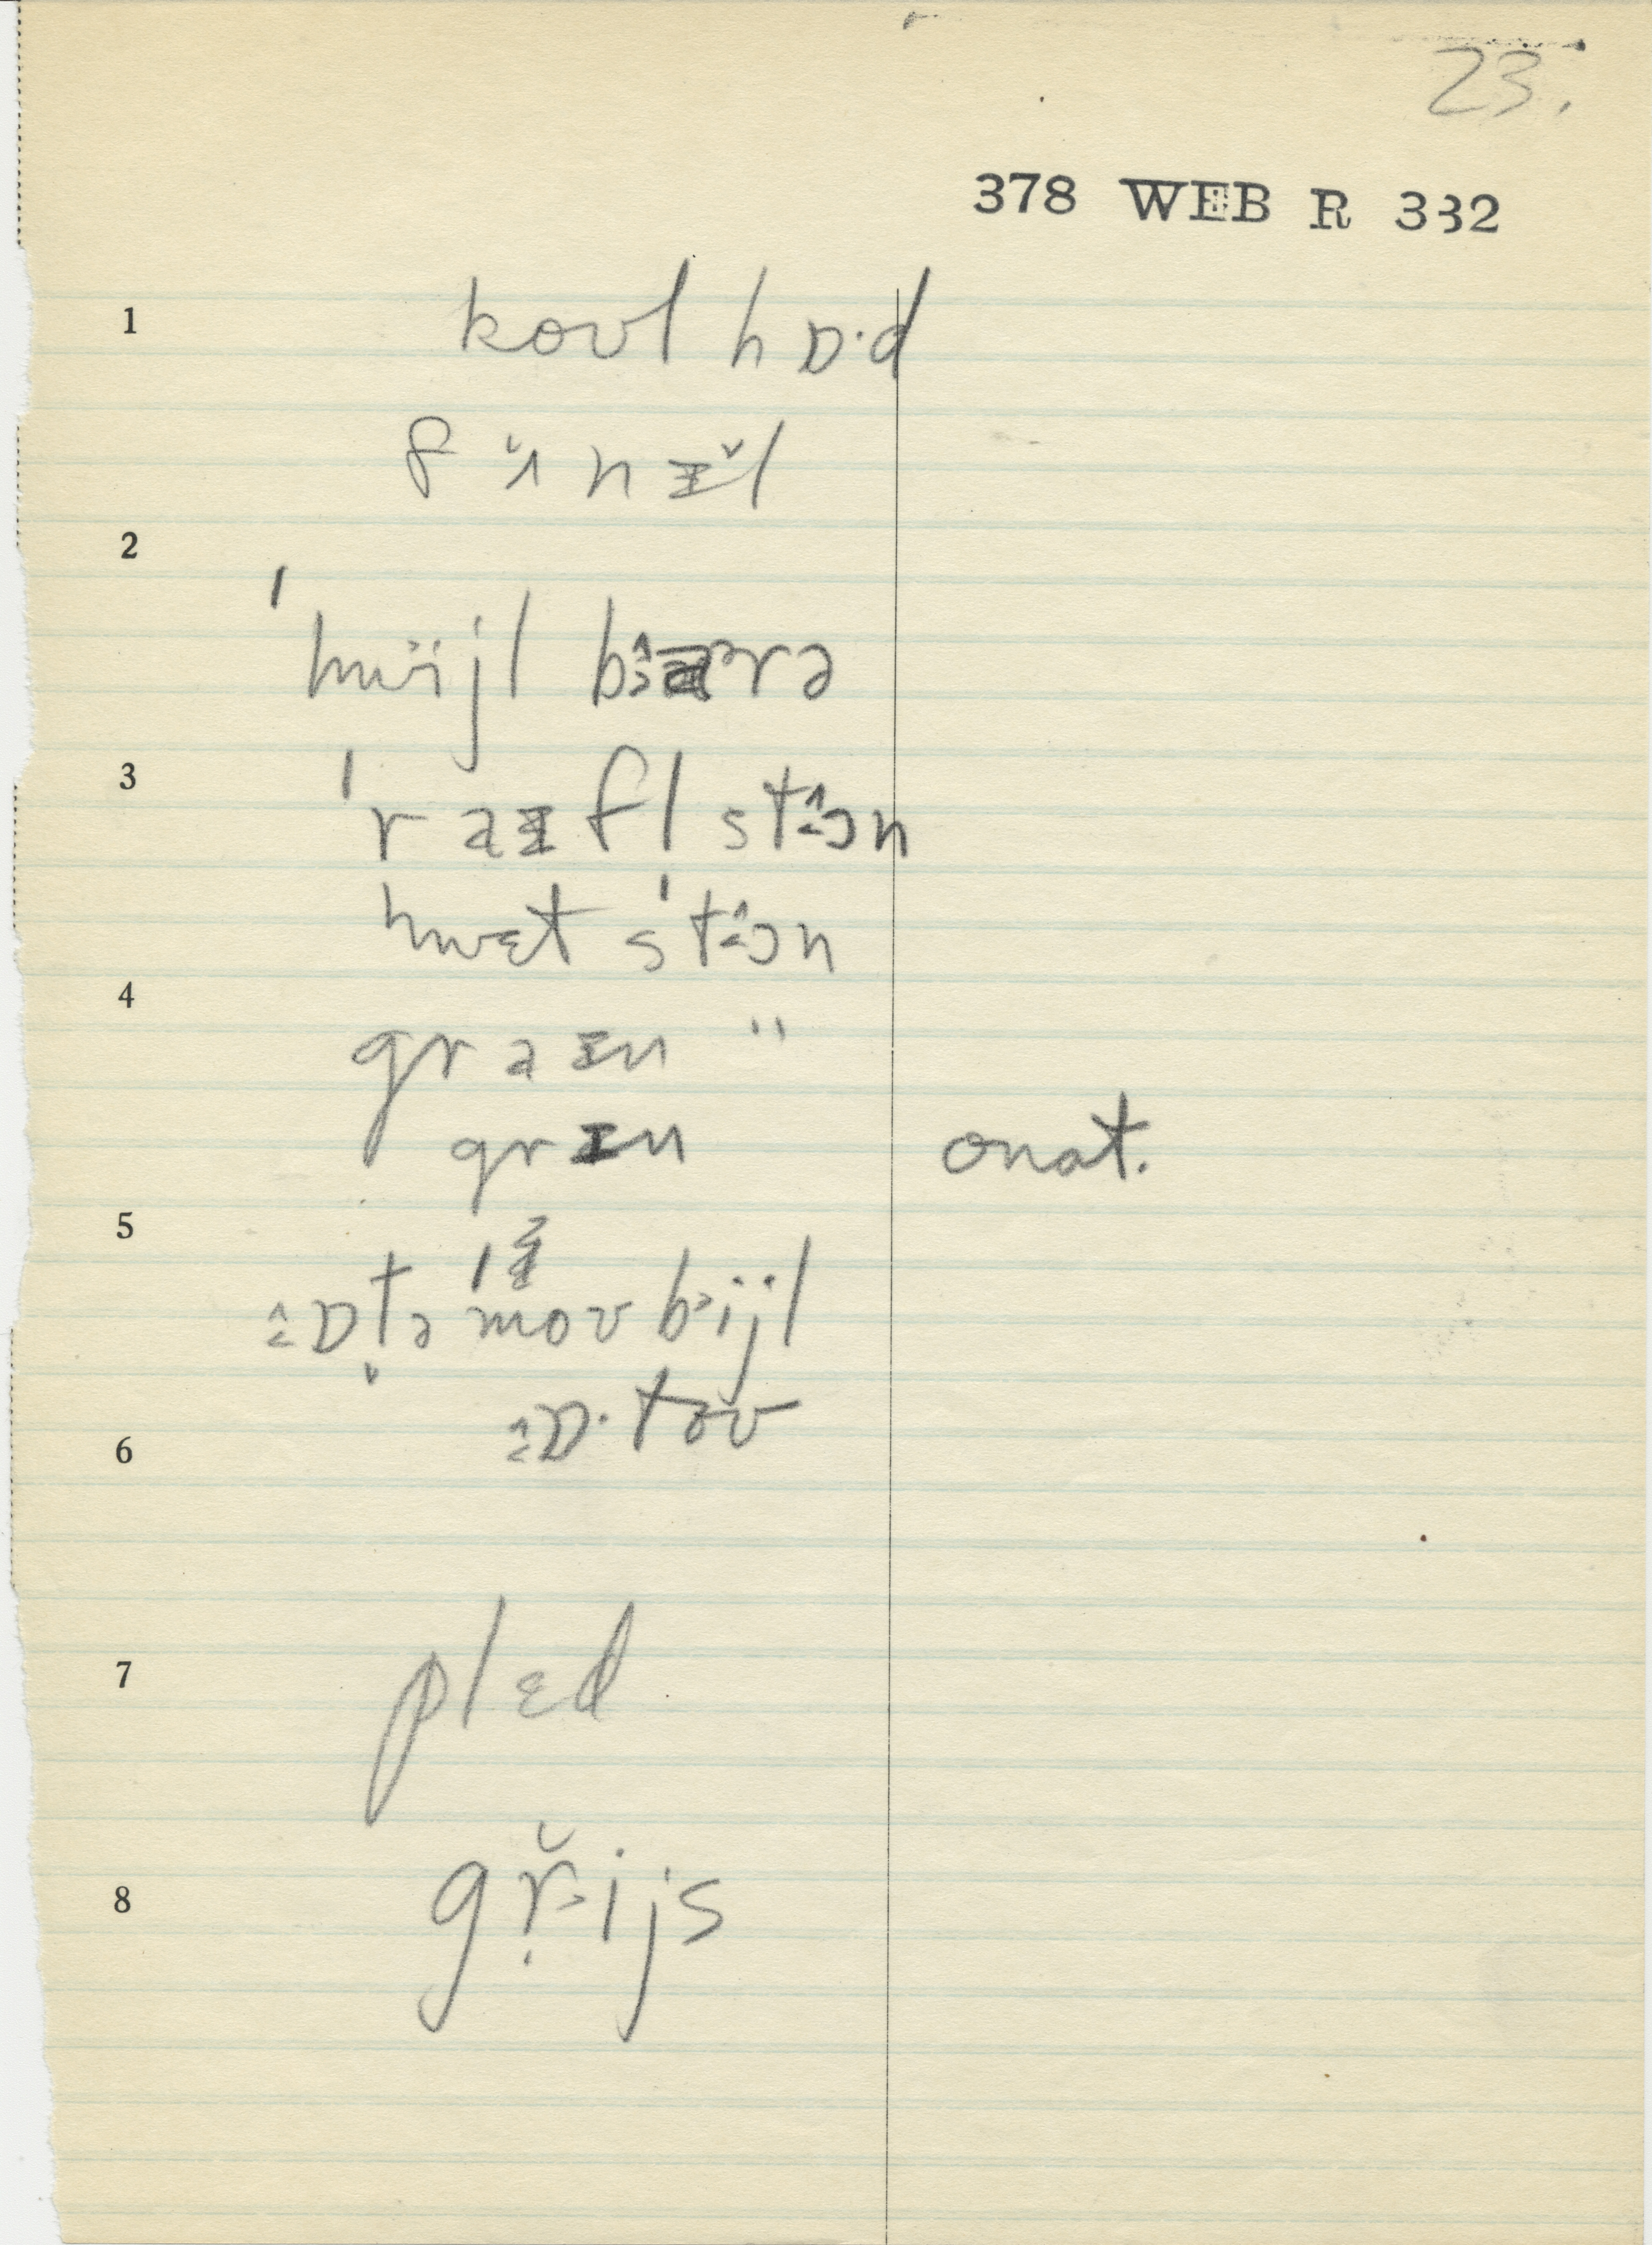 23.
378 WEB R 332
1 koʊl hɒ·d
fʌ̆nɪ̆l
2
ˈhwijl bærə
3 ˈraɪfl stɔn
hwɛt ˈstɔn
4
graɪn "
grɪn onat.
5
ɒt̬əˈmoʊbijl
6 ɒ·toʊ
7 plɛd
8 gr̆ijs